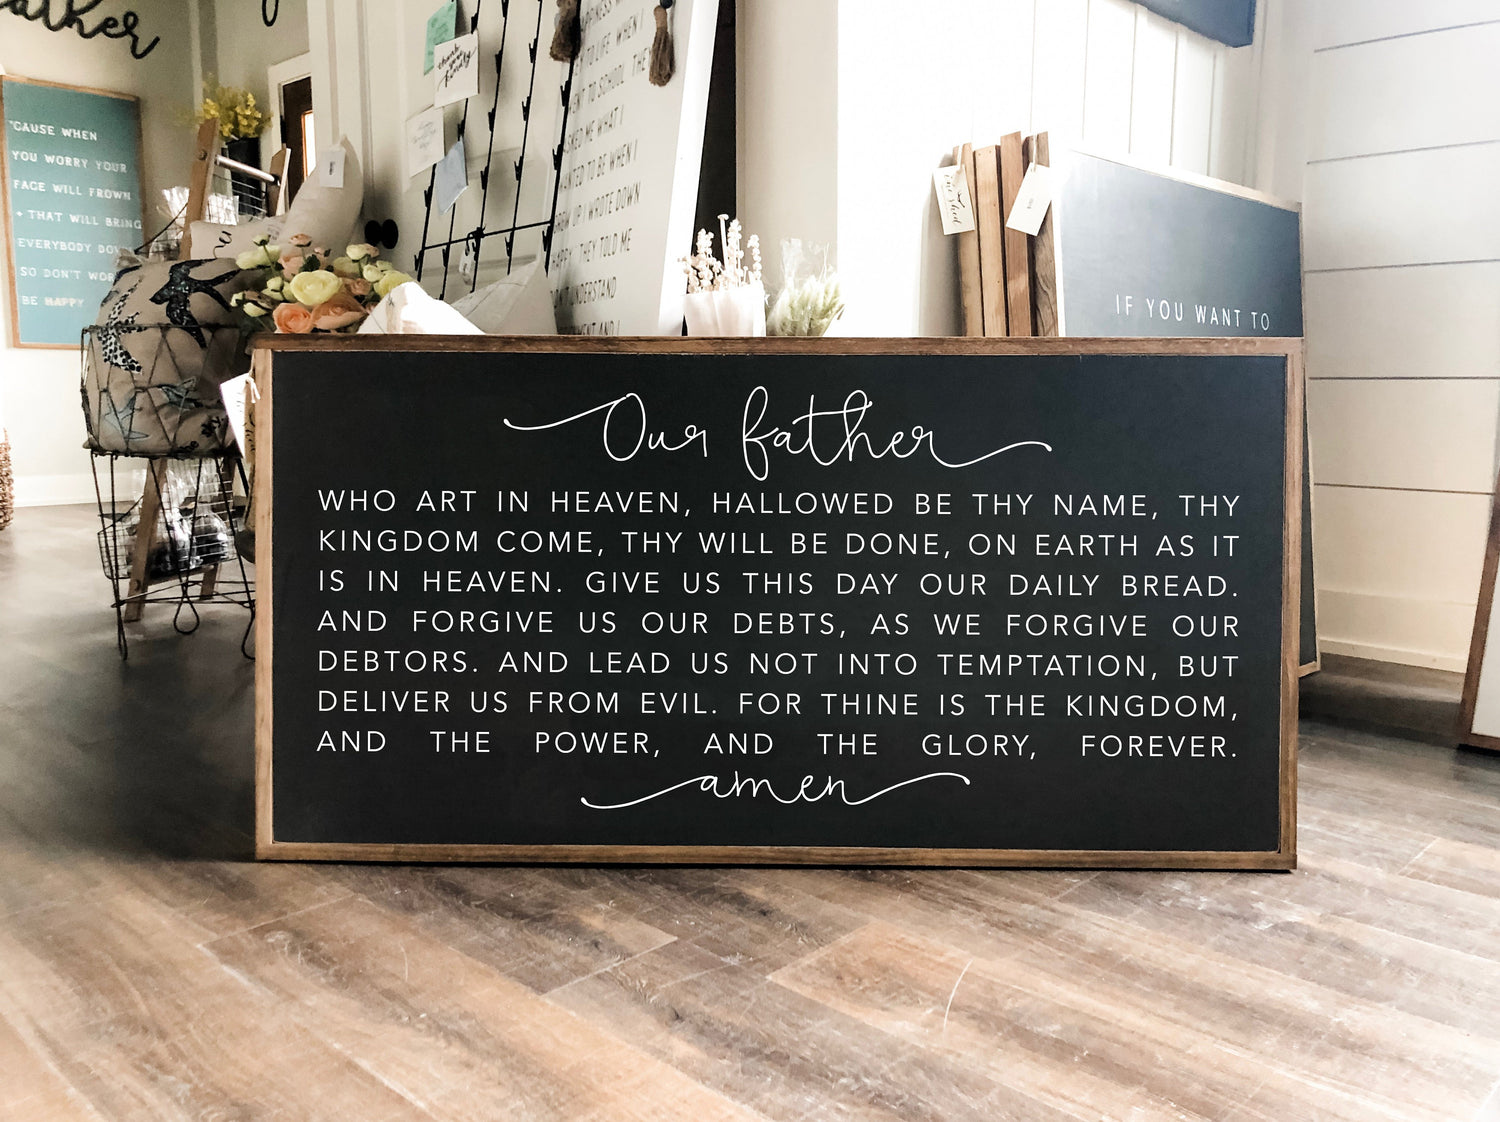 ather
'CAUSE WHEN
YOU WORRY YOUR
FACE WILL FROWN
+ THAT WILL BRING
EVERYBODY DOW
SO DON'T WOR
BE HAPPY
thank you kindly
TO LIFE. WHEN I
NT TO SCHOOL, THE
SKED ME WHAT I
NTED TO BE WHEN I
ROW UP I WROTE DOWN
HAPPY. THEY TOLD ME
UNDERSTAND
AND I
IF YOU WANT TO
Our father
WHO ART IN HEAVEN, HALLOWED BE THY NAME, THY
KINGDOM COME, THY WILL BE DONE, ON EARTH AS IT
IS IN HEAVEN. GIVE US THIS DAY OUR DAILY BREAD.
AND FORGIVE US OUR DEBTS, AS WE FORGIVE OUR
DEBTORS. AND LEAD US NOT INTO TEMPTATION, BUT
DELIVER US FROM EVIL. FOR THINE IS THE KINGDOM,
AND THE POWER, AND THE GLORY, FOREVER.
amen